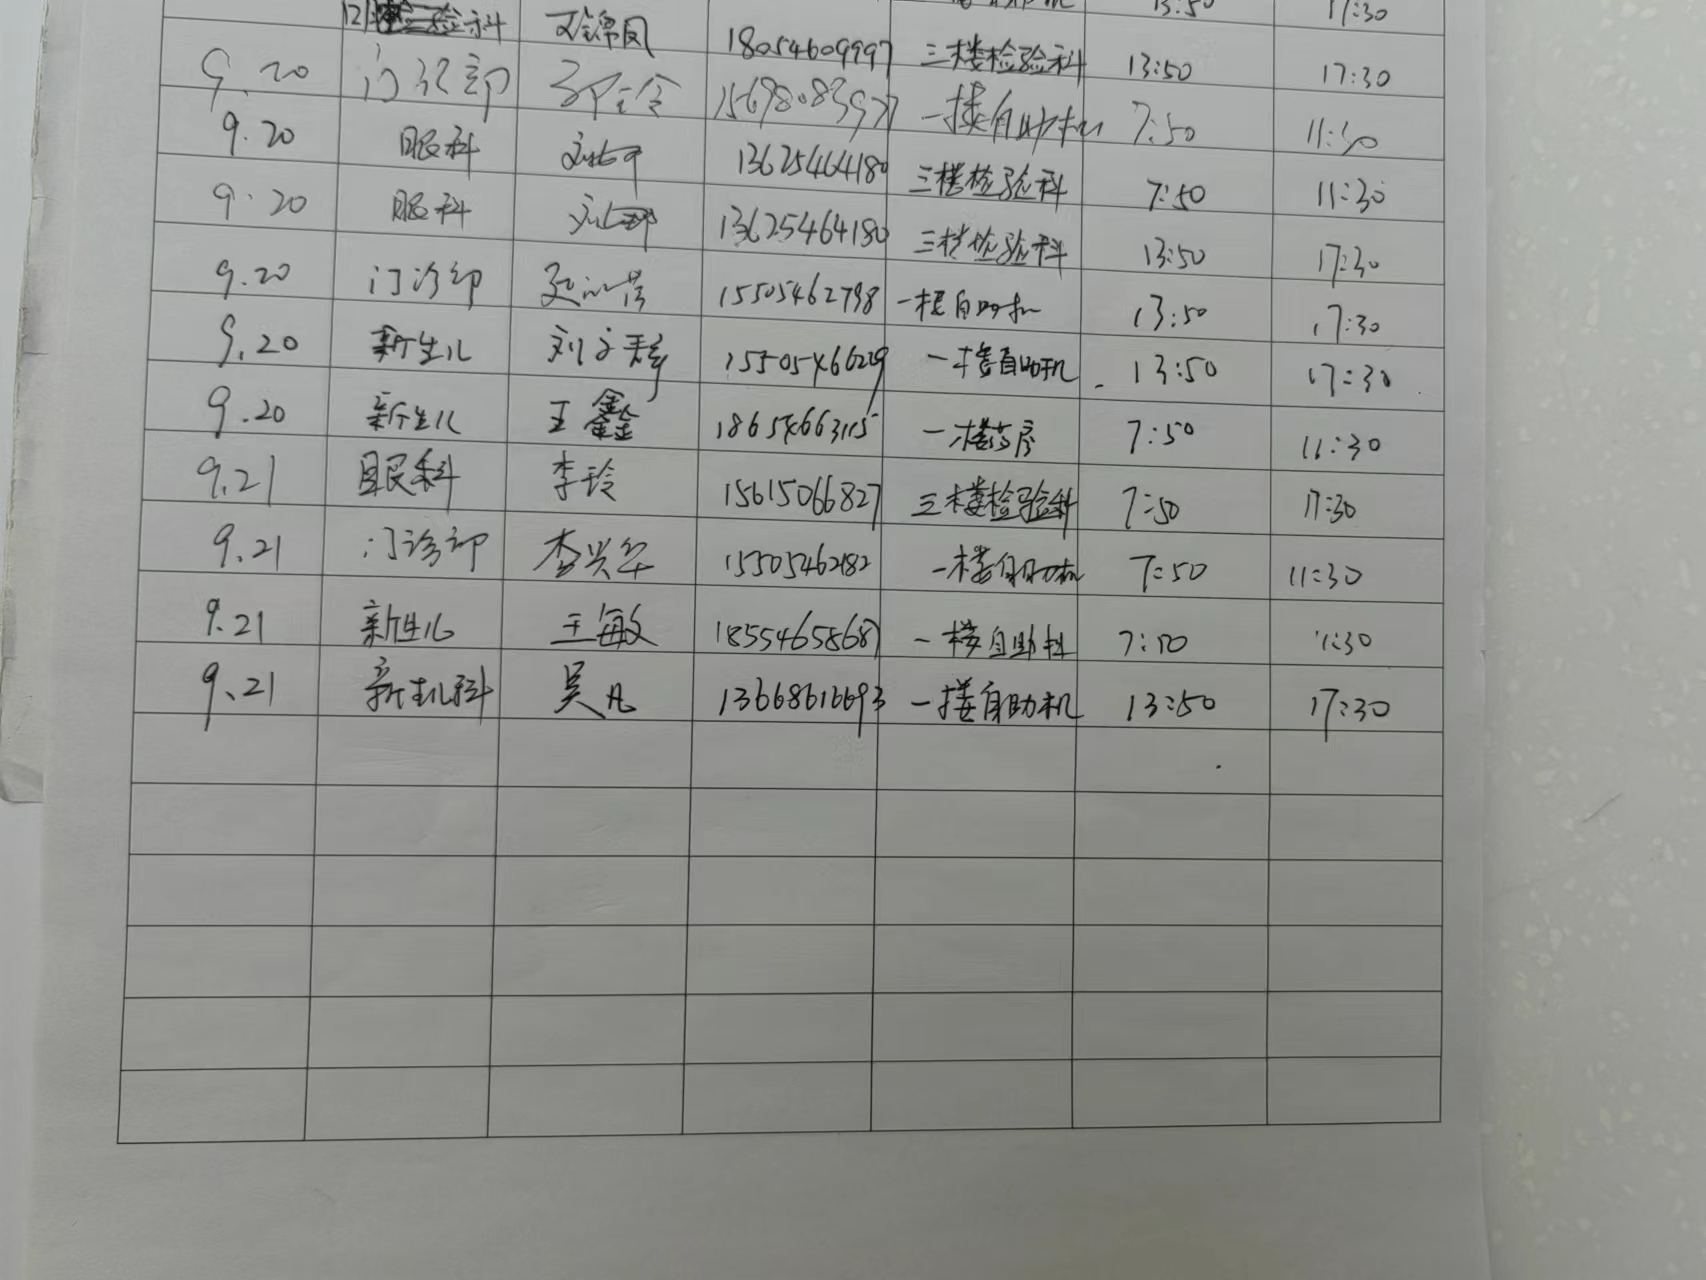 13:50 17:30
检验科 王锦凤 18054609997 三楼检验科 13:50 17:30
9.20 门诊部 15698083977 一楼自助机 7:50 11:30
9.20 眼科 13625464180 三楼检验科 7:50 11:30
9.20 眼科 13625464180 三楼检验科 13:50 17:30
9.20 门诊部 15505462798 一楼自助机 13:50 17:30
9.20 新生儿 刘 15505466229 一楼自助机 13:50 17:30
9.20 新生儿 王鑫 18654663115 一楼药房 7:50 11:30
9.21 眼科 李玲 15615066827 三楼检验科 7:50 17:30
9.21 门诊部 李兴华 15505462182 一楼自助机 7:50 11:30
9.21 新生儿 王敏 18554658687 一楼自助机 7:50 11:30
9.21 新生儿科 吴凡 13668616693 一楼自助机 13:50 17:30